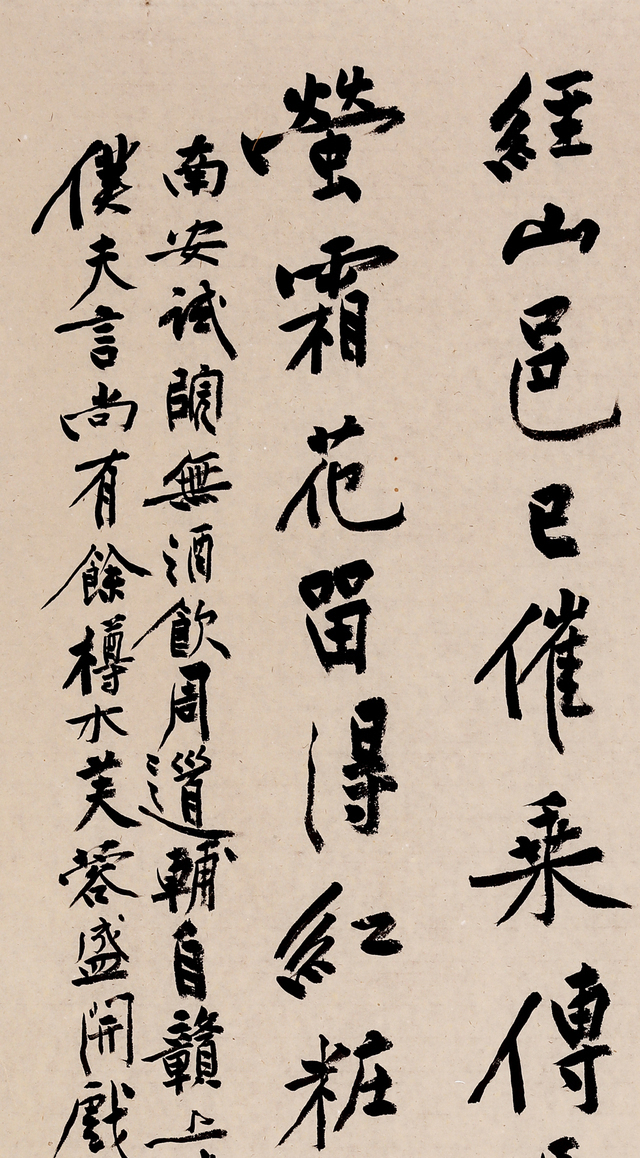 經山邑已催乘傳
螢霜花留得紅粧
南安試院無酒飲周道輔自贛上
僕夫言尚有餘樽木芙蓉盛開戲